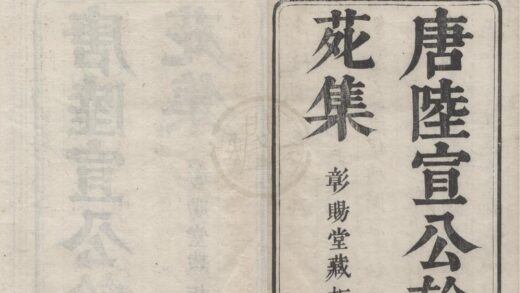 唐陸宣公
苑集
彰賜堂藏